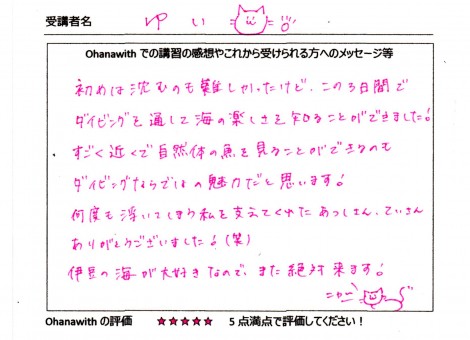 受講者名 ゆい
Ohanawith での講習の感想やこれから受けられる方へのメッセージ等
初めは沈むのも難しかったけど、この3日間で
ダイビングを通して海の楽しさを知ることができました!
すごく近くで自然体の魚を見ることができるのも
ダイビングならではの魅力だと思います!
何度も浮いてしまう私を支えてくれたあっしさん、ていさん
ありがとうございました!(笑)
伊豆の海が大好きなので、また絶対来ます!
ニャー
Ohanawith の評価 ★★★★★ 5点満点で評価してください!